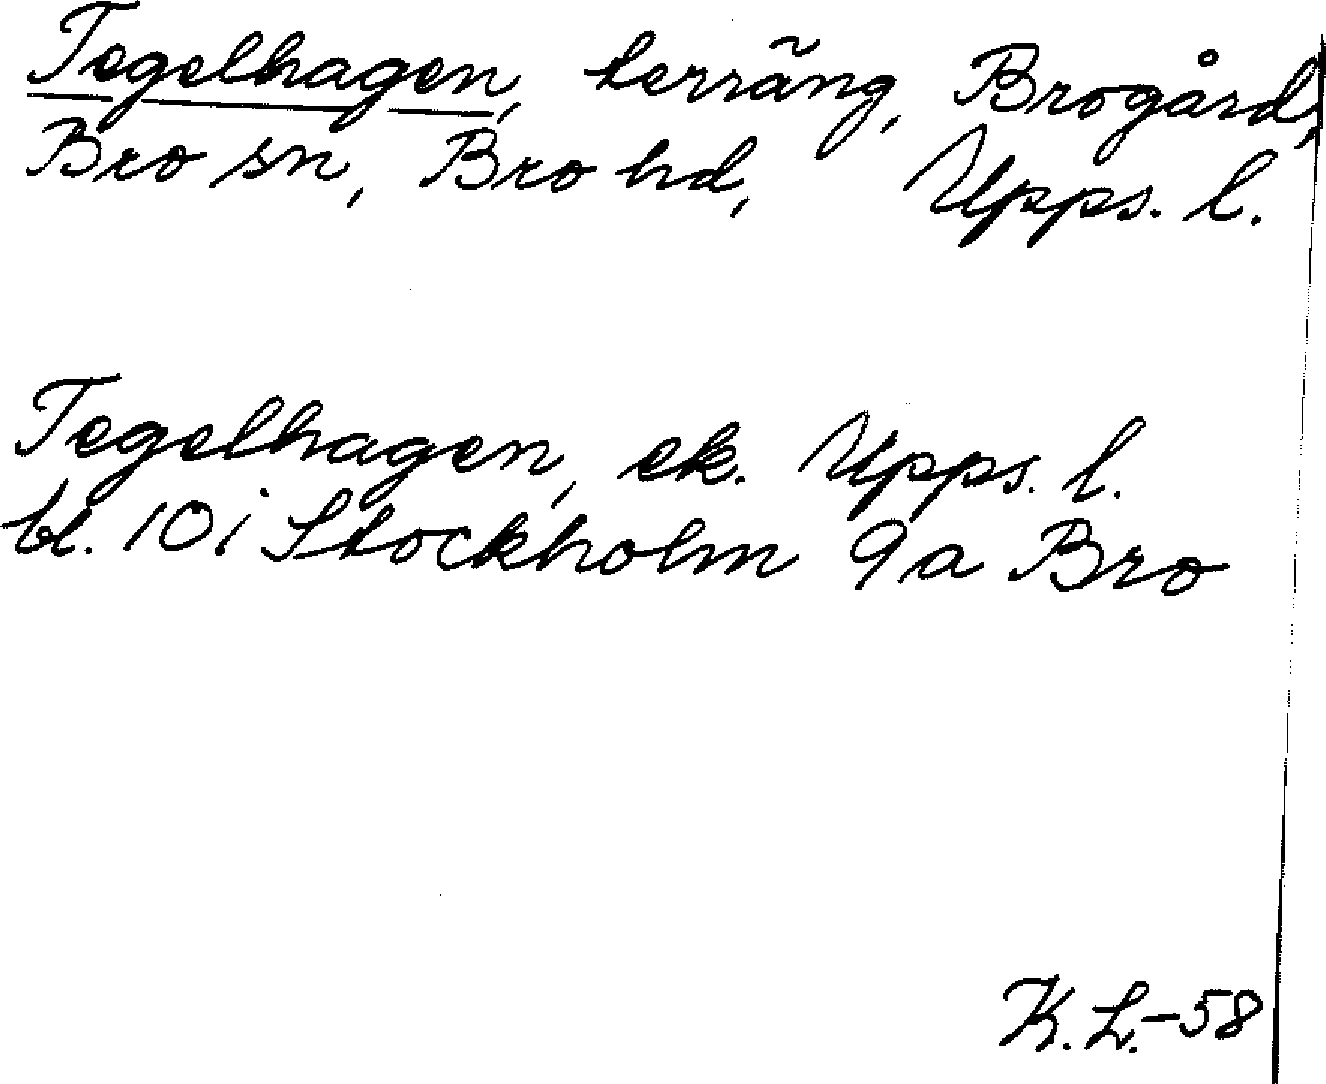 Tegelhagen, terräng, Brogård,
Bro sn, Bro hd, Upps. l.
Tegelhagen, ek. Upps. l.
bl. 10 i Stockholm 9a Bro
K. L.-58